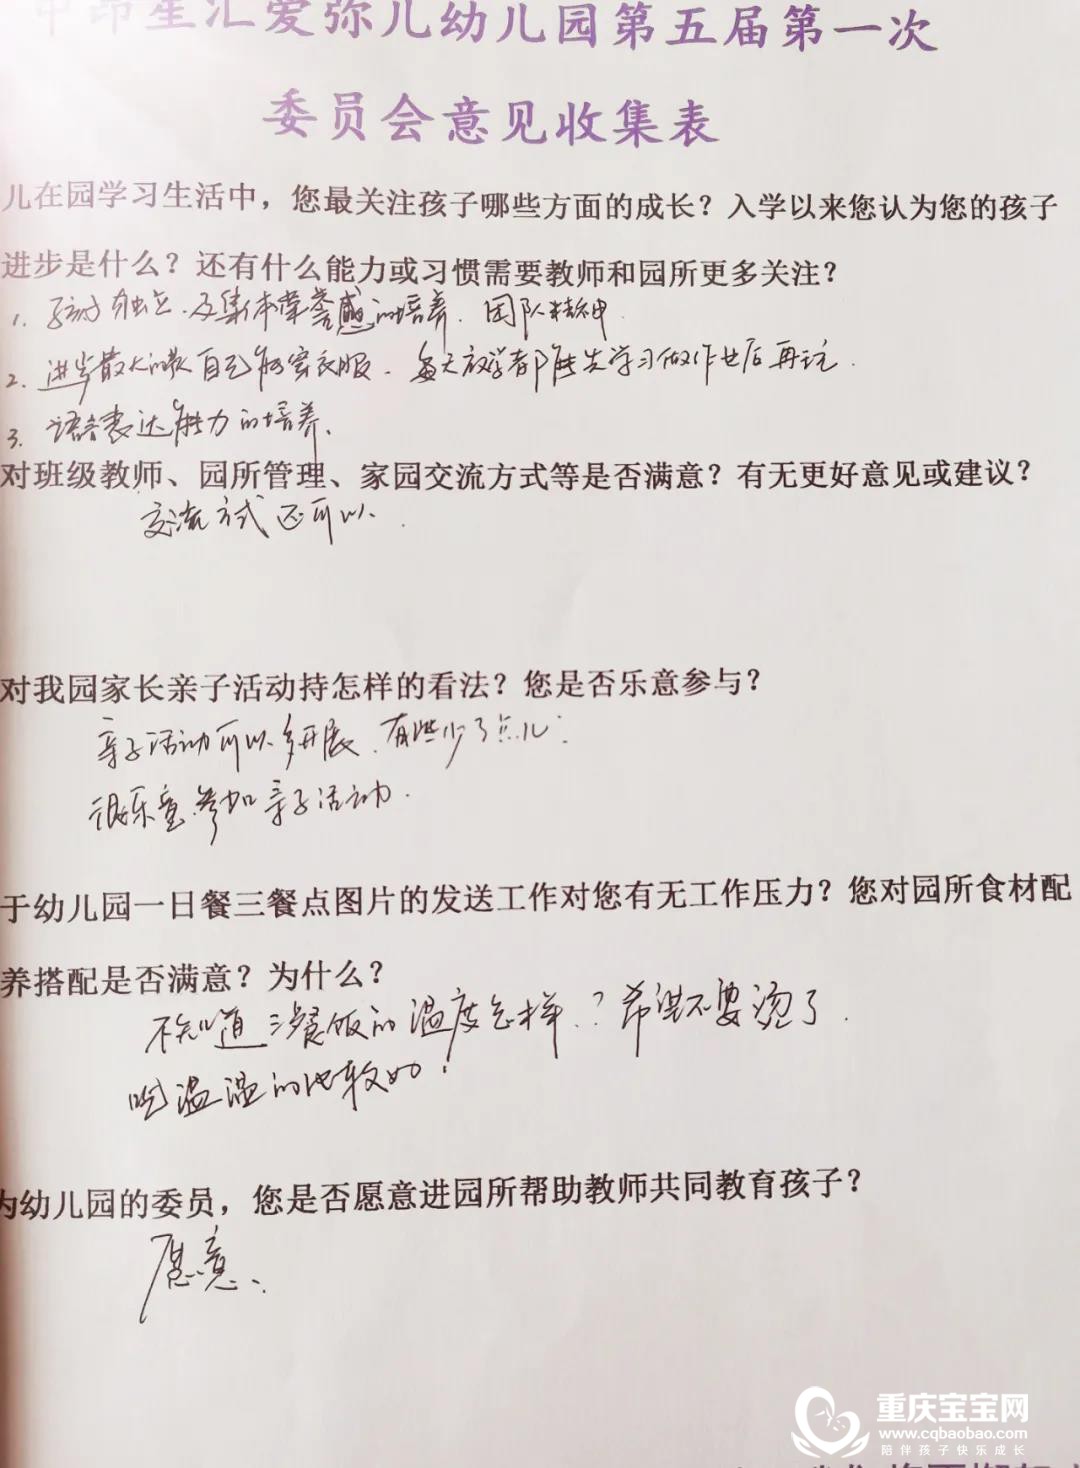 中昂星汇爱弥儿幼儿园第五届第一次
委员会意见收集表
儿在园学习生活中，您最关注孩子哪些方面的成长？入学以来您认为您的孩子
进步是什么？还有什么能力或习惯需要教师和园所更多关注？
1. 独立、及集体荣誉感的培养、团队精神
2. 进步最大的是自己能穿衣服、每天放学都能先学习做作业后再玩.
3. 语言表达能力的培养、
对班级教师、园所管理、家园交流方式等是否满意？有无更好意见或建议？
交流方式还可以.
对我园家长亲子活动持怎样的看法？您是否乐意参与？
亲子活动可以多开展、有些少了点儿.
很乐意参加亲子活动.
于幼儿园一日餐三餐点图片的发送工作对您有无工作压力？您对园所食材配
养搭配是否满意？为什么？
不知道三餐饭的温度怎样.？希望不要烫了.
吃温温的比较好！
为幼儿园的委员，您是否愿意进园所帮助教师共同教育孩子？
愿意.
重庆宝宝网
www.cqbaobao.com
陪伴孩子快乐成长